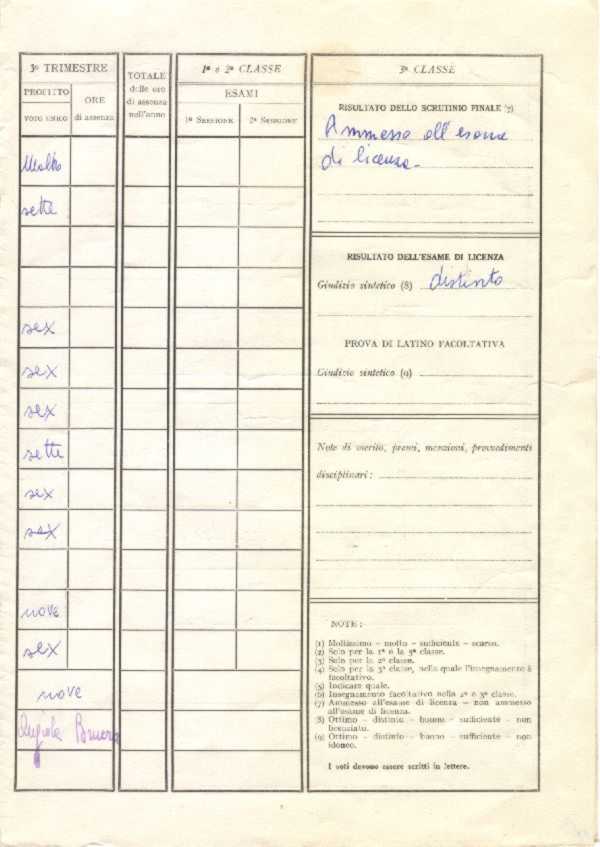 3º TRIMESTRE
PROFITTO
VOTO UNICO
ORE
di assenza
TOTALE
delle ore
di assenza
nell'anno
1ª e 2ª CLASSE
ESAMI
1ª SESSIONE
2ª SESSIONE
3ª CLASSE
Molto
sette
sex
sex
sex
sette
sex
sex
nove
sex
nove
RISULTATO DELLO SCRUTINIO FINALE (7)
Ammesso all'esame
di licenza.
RISULTATO DELL'ESAME DI LICENZA
Giudizio sintetico (8) distinto
PROVA DI LATINO FACOLTATIVA
Giudizio sintetico (9)
Note di merito, premi, menzioni, provvedimenti
disciplinari:
NOTE:
(1) Moltissimo - molto - sufficiente - scarso.
(2) Solo per la 1ª e la 3ª classe.
(3) Solo per la 2ª classe.
(4) Solo per la 3ª classe, nella quale l'insegnamento è
facoltativo.
(5) Indicare quale.
(6) Insegnamento facoltativo nella 2ª e 3ª classe.
(7) Ammesso all'esame di licenza - non ammesso
all'esame di licenza.
(8) Ottimo - distinto - buono - sufficiente - non
licenziato.
(9) Ottimo - distinto - buono - sufficiente - non
idoneo.
I voti devono essere scritti in lettere.